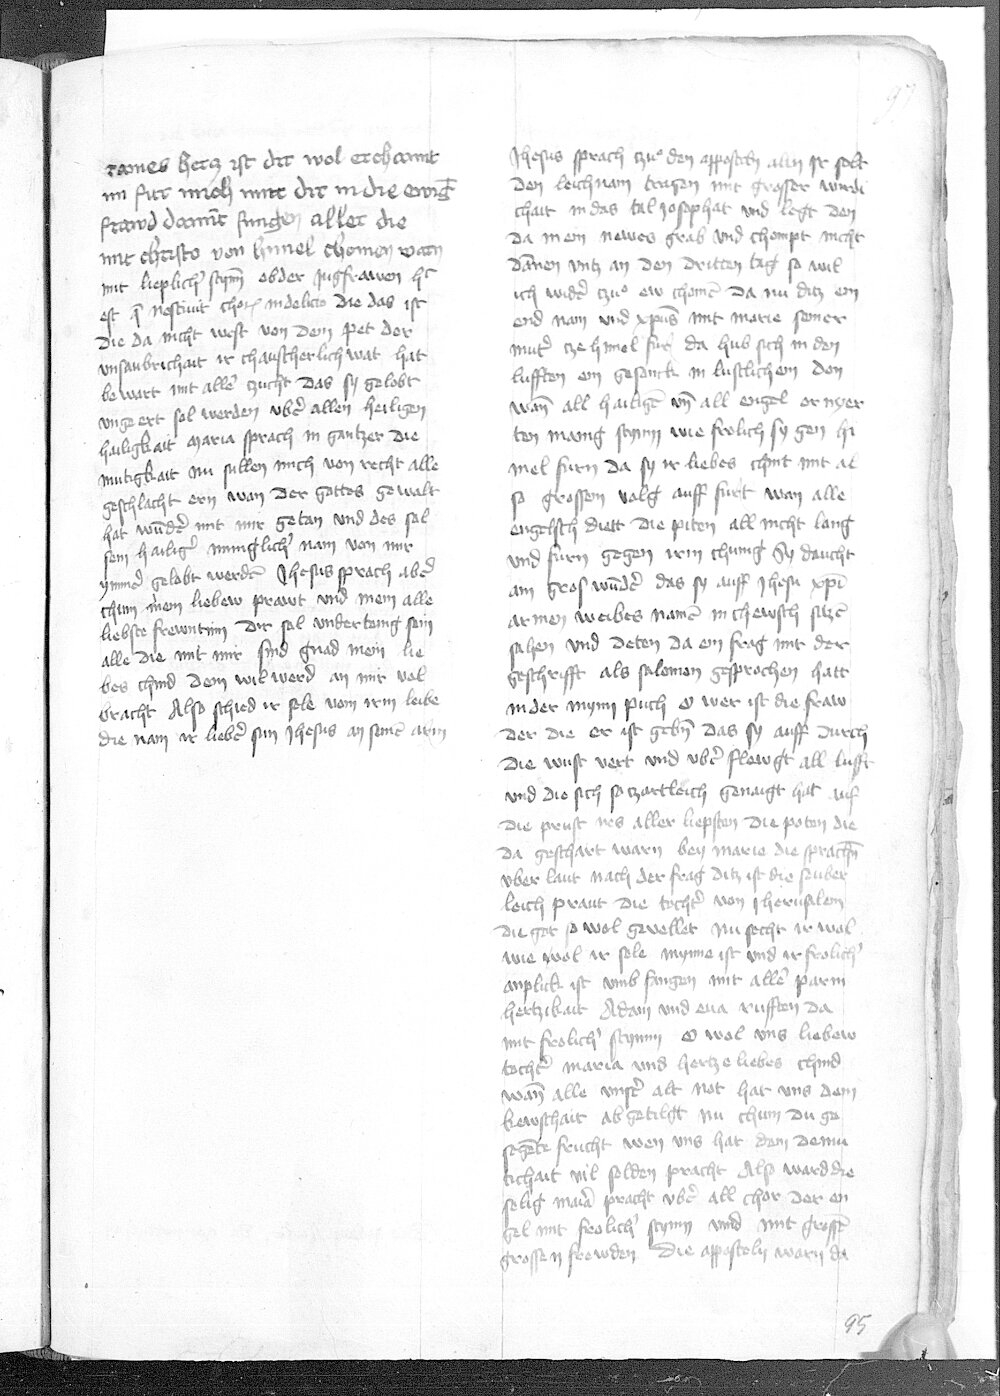 raines hercz ist dir wol erchannt
nu für mich mit dir in die ewig
frawd damit sungen aller die
mit christo von himel chomen warn
mit lieplich stym ob der jugfrawen hec
est que nescivit thorum in delicto die das ist
die da nicht west von dem pet der
unsaubrichait ir chauscherlich wat hat
bewart mit aller czucht das sy gelobt
und geert sol werden uber allen heiligen
hailigkait Maria sprach in gantzer die
mutigkait Nu sullen mich von recht alle
geschlacht ern wan der gottes gewalt
hat wunder mit mir getan und des sol
sein hailiger minniglich nam von mir
ymmer gelobt werden Jhesus sprach aber
chum mein liebew prawt und mein alle
liebste frewntinn Dir sol undertenig sein
alle die mit mir sind gnad mein lie
bes chind dem wil werd an mir vol
bracht Also schied ir sele vom irm leibe
die nam ir lieber sun Jhesus an seine arm
97
Jhesus sprach czu den appostoln alln Ir solt
den leichnam tragen mit grosser wirdi
chait in das tal Josaphat und legt den
da in ein newes grab und chompt nicht
dannen untz an den dritten tag so wil
ich wider czu ew chomen Da nu ditz ein
end nam und xpus mit marie seiner
muter cze himel fur da hub sich in den
lufften ein gesanck in lustlichem don
wann all hailigen und all engel ernyer
ten manig stymm wie frolich sy gen hi
mel furn da sy ir liebes chint mit al
so grossem volg auff furt wan alle
engelisch diett die piten all nicht lang
und furn gegen irm chunig Sy daucht
ain gros wunder das sy auff Jhesu xpi
armen weibes namen in chewsch sitzen
sahen und deten da ein frag mit der
geschrifft als salomon gesprochen hatt
in der mynn puch O wer ist die fraw
der die er ist geben das sy auff durch
die wust vert und uber flewgt all lufft
und die sich so czartleich genaigt hat auf
die prust irs aller liepsten Die poten die
da geschart warn bey marie die sprachen
uber laut nach der frag ditz ist die sauber
leich praut die tochter von Jherusalem
die got so wol gevellet Nu secht ir wol
wie wol ir sele mynne ist und ir frolich
anplick ist umb fangen mit aller parm
hertzikait Adam und eva rufften da
mit frolich stymm O wol uns liebew
tochter maria und hertze liebes chind
wann alle unser alt not hat uns dein
kewschait ab getilgt nu chum du ge
segente frucht wen uns hat dein demu
tichait vil selden pracht Also ward die
selig maria pracht uber all chor der en
gel mit frolich stymm und mit grossen
grossen frewden Die apposteln warn da
95